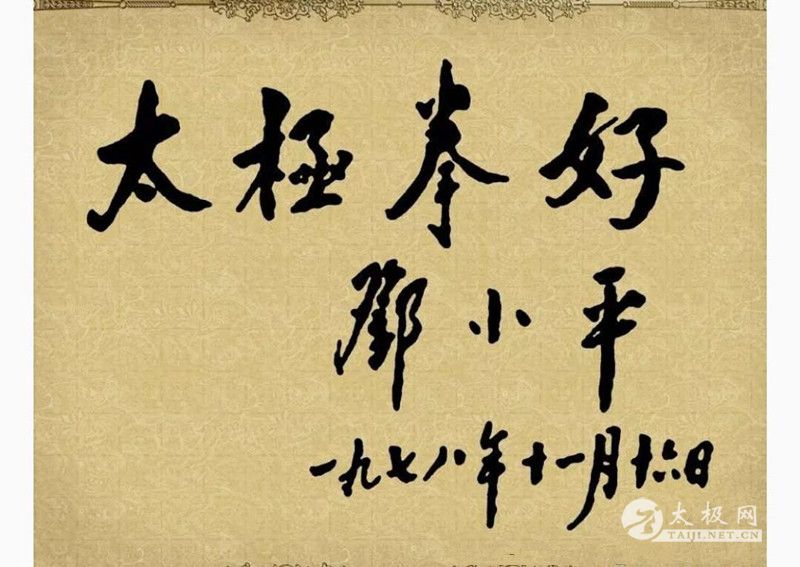 太極拳好
鄧小平
一九七八年十一月十六日
太极网
TAIJI.NET.CN